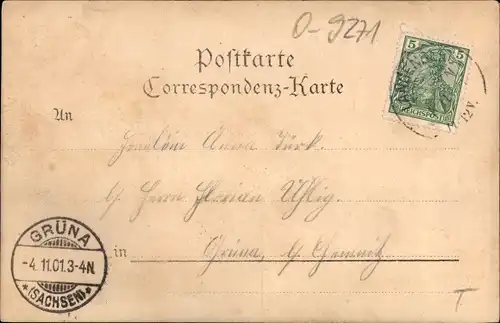 O-9271
5 5
REICHSPOST
12V.
Postkarte
Correspondenz-Karte
An
Fräulein Anna Türk.
b/ Herrn Florian Uhlig.
in Grüna, b/ Chemnitz
GRÜNA
-4.11.01.3-4N.
*(SACHSEN)*
T